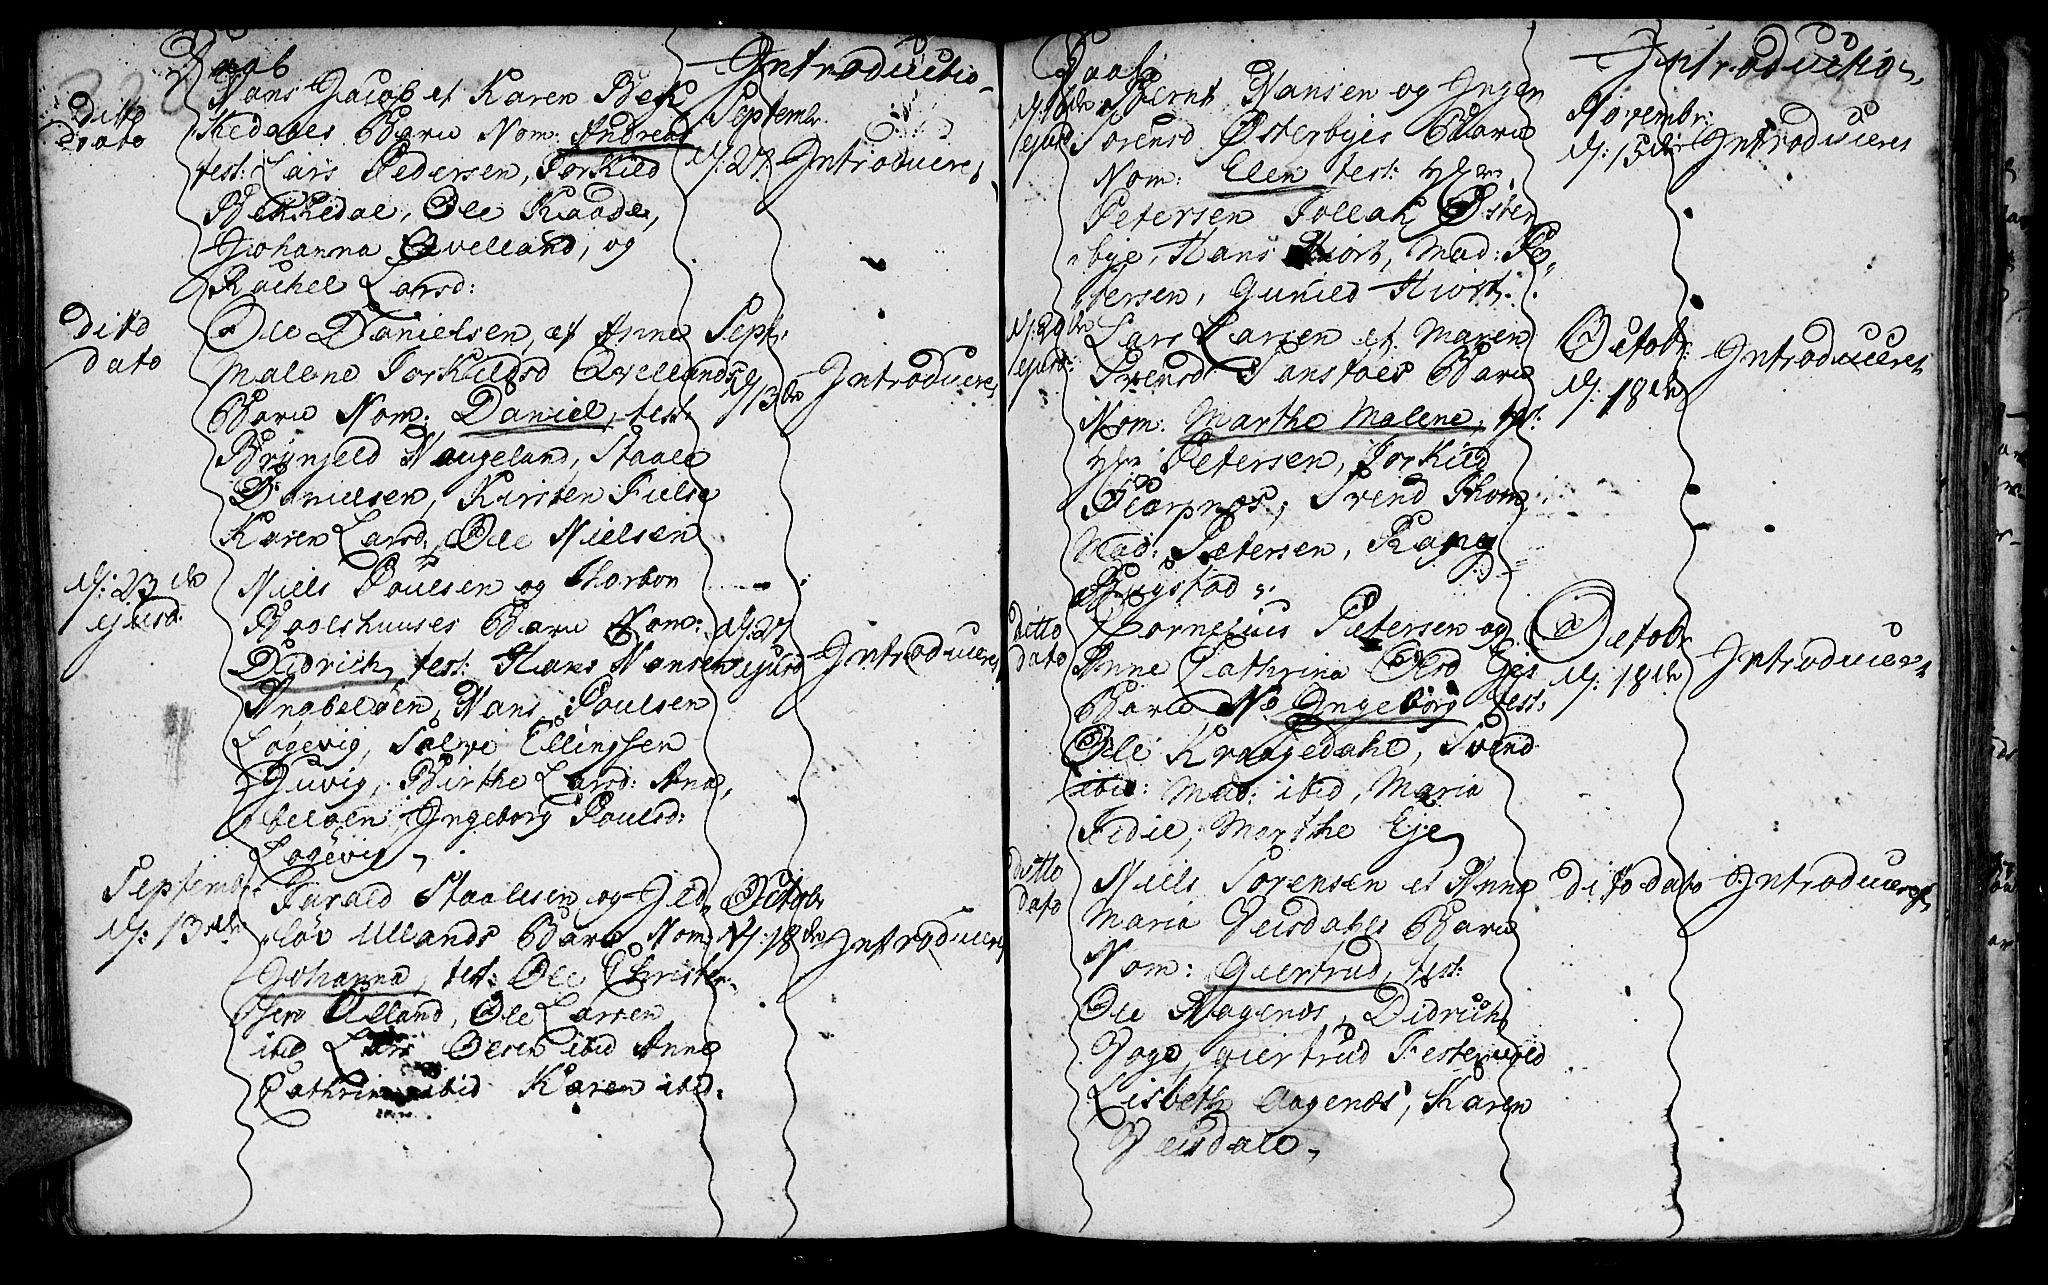 Daab
Introductio
Ditto
Dato
Hans Jacob et Karen Bek
Kedals Barn Nom: Andreas
test: Lars Pedersen, Torkild
Bekkedal, Ole Kaade,
Johanna Qvelland, og
Rachel Larsd:
Septembr.
d: 27. Introduceret
Dito
dato
Ole Danielsen, et Anne
Malene Torkildsd Qvellands
Barn Nom: Daniel, test:
Brynjeld Haugeland, Staale
Danielsen, Kirsten
Karen Larsd: Ole Nielsen
Septr:
d: 13de Introduceret
d: 23de
ejusd.
Niels Poulsen og Thorbor
Baaeshuuses Barn Nom:
Didrich, test: Hans Hansen
Anabeløen, Hans Poulsen
Løgevig, Salve Ellingsen
Birthe Larsd: Ana,
beløen, Ingeborg Poulsd:
Løgevig
d. 27
ejusd Introduceret
Septembr.
d: 13de
Tarald Staalesen og Jed,
løv Ullands Barn Nom:
Johanna, test: Ole Christen,
sen Ulland, Ole Larsen
ibid Lars Olsen ibid Anne
Cathrina ibid Karen ibid:
Octobr
d: 18de Introduceret
Daab
Introduction
d: 18de
ejusd
Bernt Hansen og Inger
Sørensd Østerbyes Barn
Nom: Elen test: Hr.
Petersen Tollak Øster
bye, Hans Hiort, Mad: Pe,
tersen, Gunild Hiort.
Novembr:
d: 15de Introduceret
d: 20de
ejusd:
Lars Larsen et Maren
Svensd Barn
Nom: Marthe Malene, tst:
Hr: Petersen, Torkild
Svend Thom
Mad: Petersen,
Bugstad
Octobr:
d: 18de Introduceret
ditto
dato
Cornelius Petersen og
Anne Cathrina Olsd Ejes
Barn No Ingeborg test:
Ole Kragedahl, Svend
ibid: Mad: ibid, Maria
Fedie, Marthe Eje
Octobr
d: 18de Introduceret
ditto
dato
Niels Sørensen et Anna
Maria Veisdahls Barn
Nom: Giertrud, test:
Ole Aagenæs, Didrich
Voge, giertrud
Lisbeth Aagenæs, Karen
Veisdale
Dito dato Introduceret